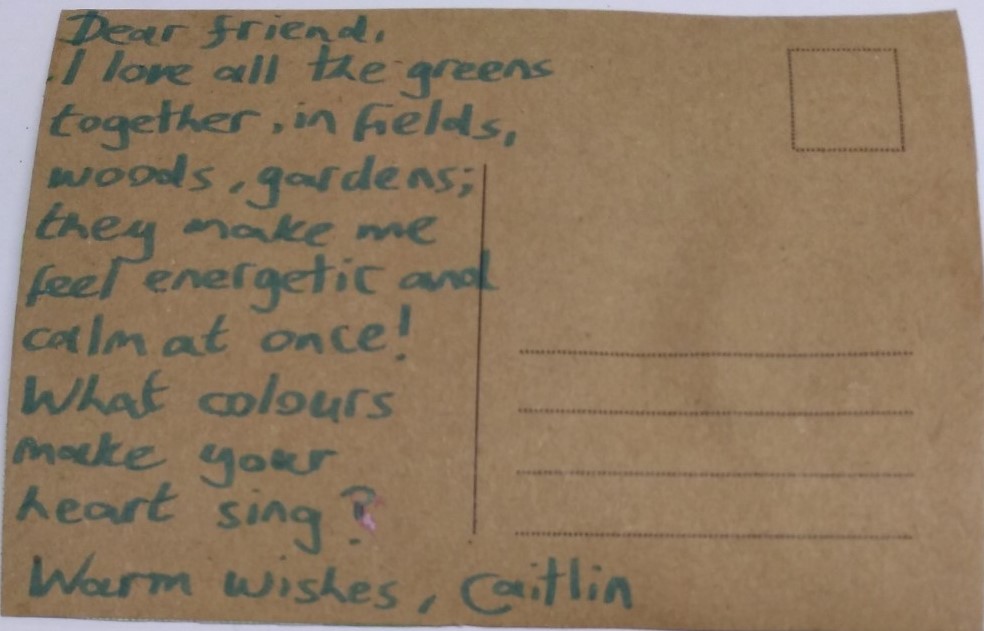 Dear friend,
I love all the greens
together, in fields,
woods, gardens;
they make me
feel energetic and
calm at once!
What colours
make your
heart sing?
Warm wishes, Caitlin